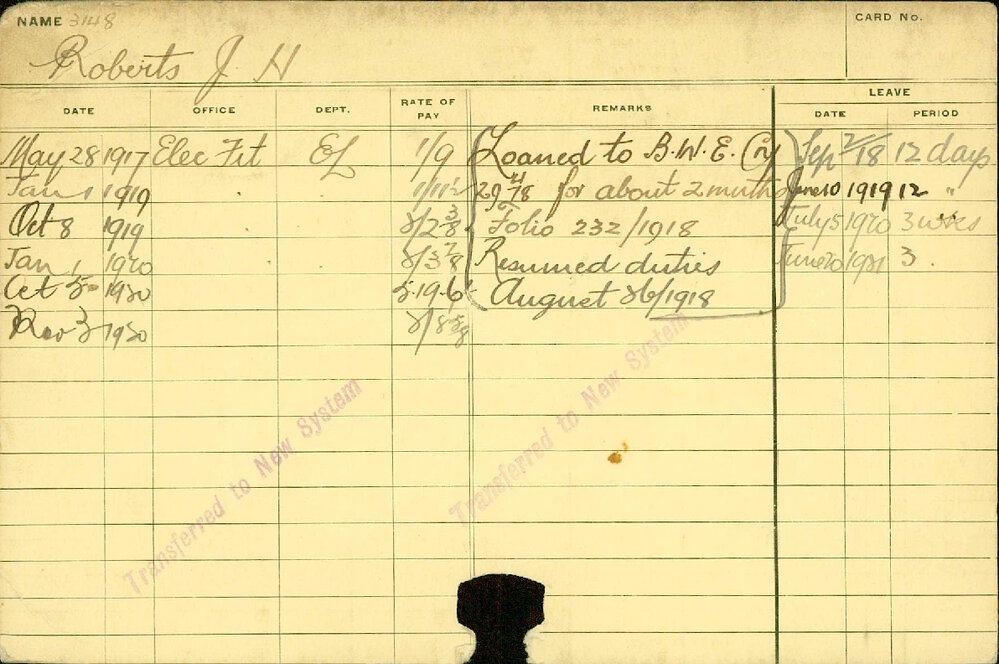 NAME 3148
CARD No.
Roberts J. H
DATE OFFICE DEPT. RATE OF PAY REMARKS LEAVE
DATE PERIOD
May 28 1917 Elec Fit EL 1/9 Loaned to B.W.E. Coy Sep 2/18 12 days
Jan 1 1919 1/11½ 29 4/18 for about 2 months June 10 1919 12 "
Oct 8 1919 2/2 3/8 Folio 232/1918 July 5 1920 3 wks
Jan 1 1920 2/3 7/8 Resumed duties June 20 1921 3
Oct 5 1920 5.19.6 August 26/1918
Nov 3 1920 2/8 5/8
Transferred to New System
Transferred to New System